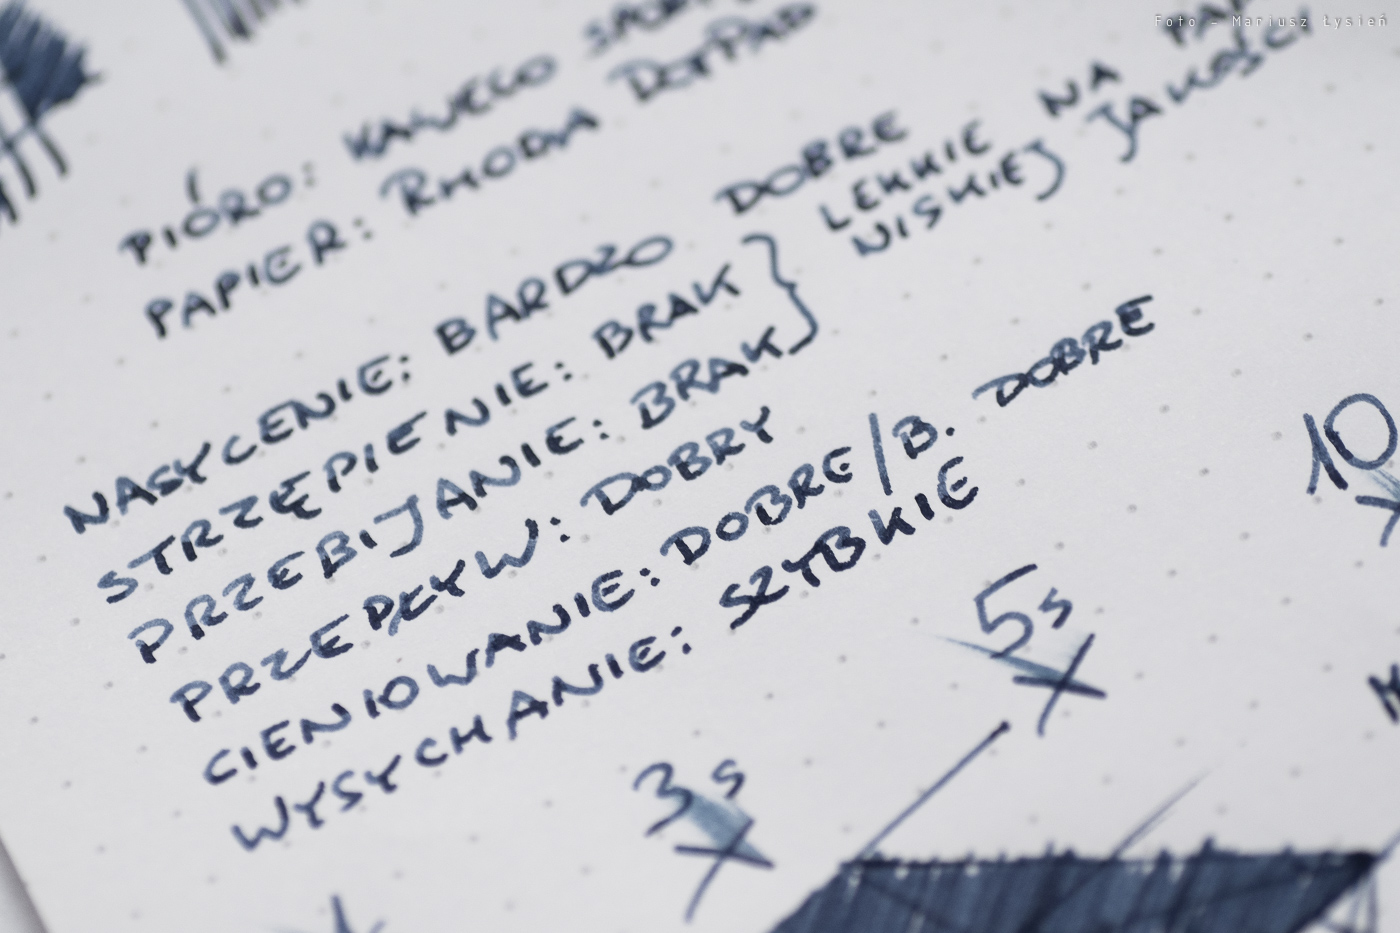 Foto - Mariusz Łysień
PIÓRO: KAWECO
PAPIER: RHODIA DOTPAD
NASYCENIE: BARDZO DOBRE
STRZĘPIENIE: BRAK } LEKKIE NA
PRZEBIJANIE: BRAK } NISKIEJ JAKOŚCI
PRZEPŁYW: DOBRY
CIENIOWANIE: DOBRE/B. DOBRE
WYSYCHANIE: SZYBKIE
3s
5s
10